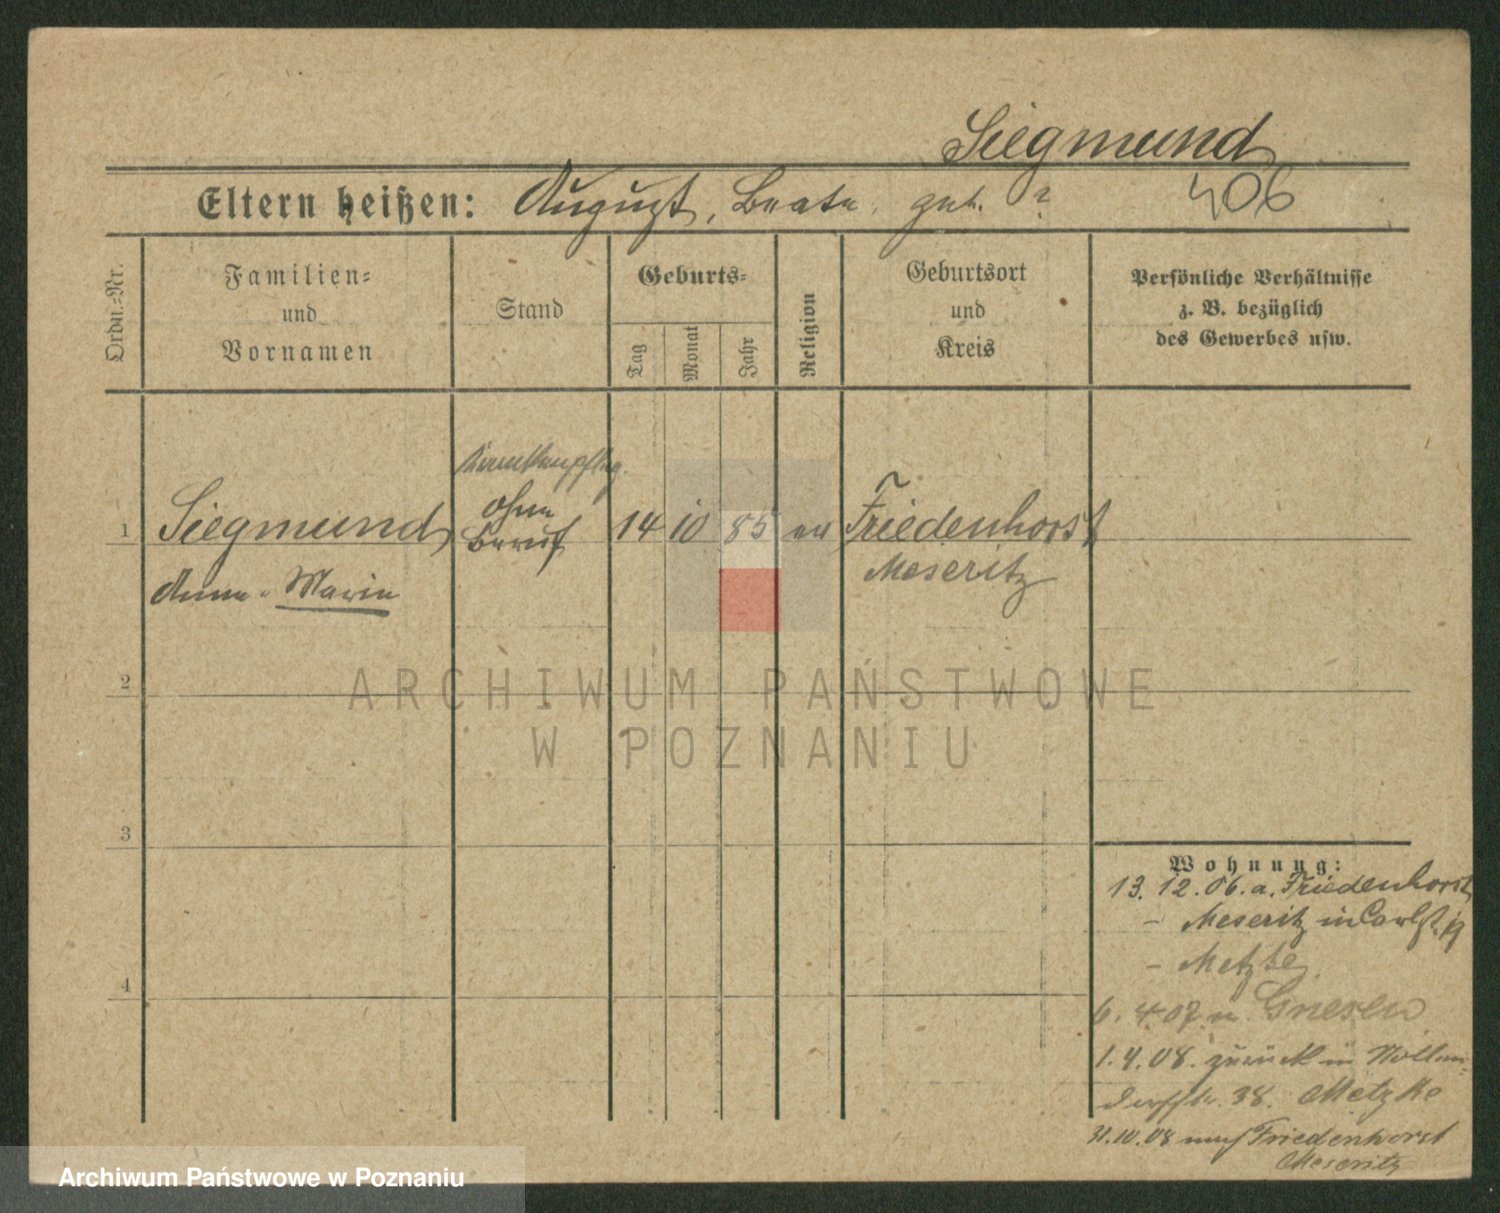 Siegmund
Eltern heißen: August, Beate geb. ?
406
Ordn.=Nr.
Familien=
und
Vornamen
Stand
Geburts=
Tag
Monat
Jahr
Religion
Geburtsort
und
Kreis
Persönliche Verhältnisse
z. B. bezüglich
des Gewerbes usw.
Krankenpfleg.
1 Siegmund ohne Beruf 14 10 85 ev Friedenhorst
Anna Marie Meseritz
2
3
4
Wohnung:
13.12.06. a. Friedenhorst
- Meseritz in Carlst. 19
- Metzke
6.4.07 n. Gnesen
1.4.08. zurück in Nollen-
dorfstr. 38. Metzke
31.10.08 nach Friedenhorst
Meseritz
ARCHIWUM PAŃSTWOWE
W POZNANIU
Archiwum Państwowe w Poznaniu